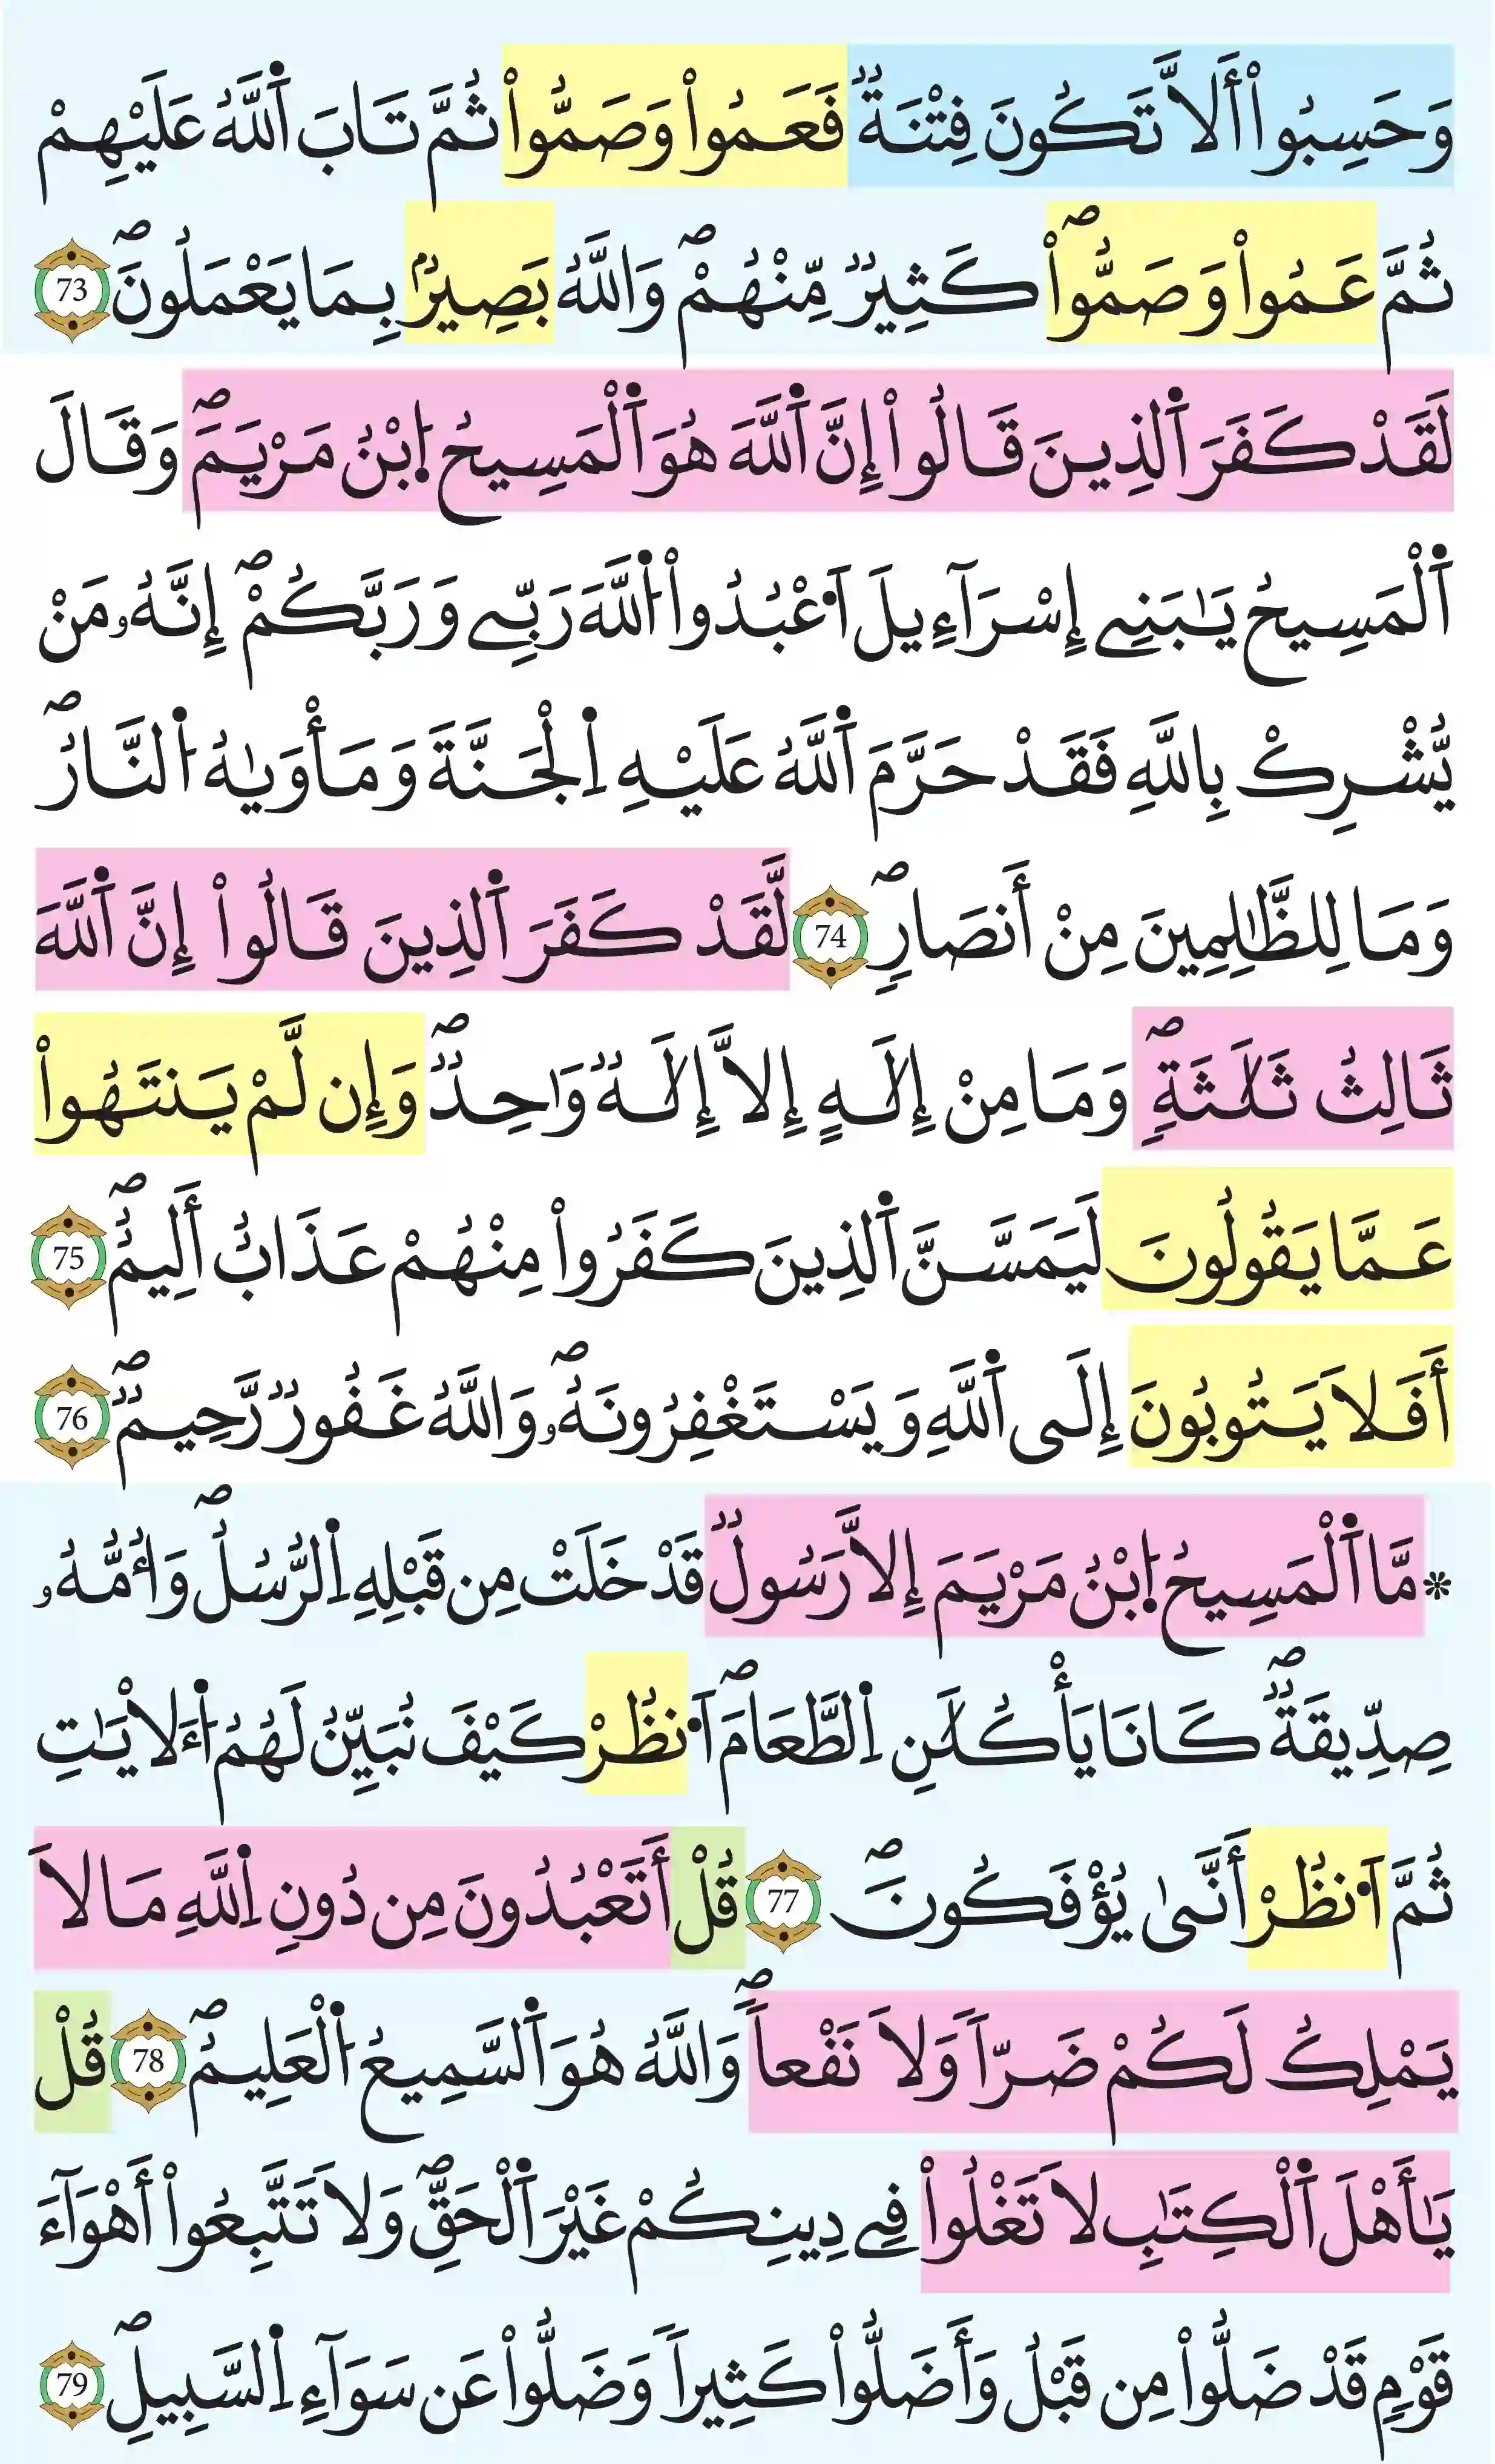 وَحَسِبُوٓاْ أَلَّا تَكُونَ فِتْنَةٞ فَعَمُواْ وَصَمُّواْ ثُمَّ تَابَ اَ۬للَّهُ عَلَيْهِمْ
ثُمَّ عَمُواْ وَصَمُّواْۖ كَثِيرٞ مِّنْهُمْۖ وَاللَّهُ بَصِيرُۢ بِمَا يَعْمَلُونَۖ 73
لَقَدْ كَفَرَ اَ۬لذِينَ قَالُواْ إِنَّ اَ۬للَّهَ هُوَ اَ۬لْمَسِيحُ اُ۪بْنُ مَرْيَمَۖ وَقَالَ
اَ۬لْمَسِيحُ يَٰبَنِےٓ إِسْرَآءِيلَ اَ۟عْبُدُواْ اُ۬للَّهَ رَبِّے وَرَبَّكُمْۖ إِنَّهُۥ مَنْ
يُّشْرِكْ بِاللَّهِ فَقَدْ حَرَّمَ اَ۬للَّهُ عَلَيْهِ اِ۬لْجَنَّةَ وَمَأْوَيٰهُ اُ۬لنَّارُۖ
وَمَا لِلظَّٰلِمِينَ مِنْ أَنصَارٖۖ 74 لَّقَدْ كَفَرَ اَ۬لذِينَ قَالُوٓاْ إِنَّ اَ۬للَّهَ
ثَالِثُ ثَلَٰثَةٖۖ وَمَا مِنْ إِلَٰهٍ إِلَّآ إِلَٰهٞ وَٰحِدٞۖ وَإِن لَّمْ يَنتَهُواْ
عَمَّا يَقُولُونَ لَيَمَسَّنَّ اَ۬لذِينَ كَفَرُواْ مِنْهُمْ عَذَابٌ أَلِيمٌۖ 75
أَفَلَا يَتُوبُونَ إِلَى اَ۬للَّهِ وَيَسْتَغْفِرُونَهُۥۖ وَاللَّهُ غَفُورٞ رَّحِيمٞۖ 76
* مَّا اَ۬لْمَسِيحُ اُ۪بْنُ مَرْيَمَ إِلَّا رَسُولٞ قَدْ خَلَتْ مِن قَبْلِهِ اِ۬لرُّسُلُۖ وَأُمُّهُۥ
صِدِّيقَةٞۖ كَانَا يَأْكُلَٰنِ اِ۬لطَّعَامَۖ اَ۟نظُرْ كَيْفَ نُبَيِّنُ لَهُمُ اُ۬لَايَٰتِ
ثُمَّ اَ۟نظُرْ أَنَّىٰ يُؤْفَكُونَۖ 77 قُلْ أَتَعْبُدُونَ مِن دُونِ اِ۬للَّهِ مَا لَا
يَمْلِكُ لَكُمْ ضَرّاٗ وَلَا نَفْعاٗۖ وَاللَّهُ هُوَ اَ۬لسَّمِيعُ اُ۬لْعَلِيمُۖ 78 قُلْ
يَٰأَهْلَ اَ۬لْكِتَٰبِ لَا تَغْلُواْ فِے دِينِكُمْ غَيْرَ اَ۬لْحَقِّۖ وَلَا تَتَّبِعُوٓاْ أَهْوَآءَ
قَوْمٖ قَدْ ضَلُّواْ مِن قَبْلُ وَأَضَلُّواْ كَثِيراٗ وَضَلُّواْ عَن سَوَآءِ اِ۬لسَّبِيلِۖ 79